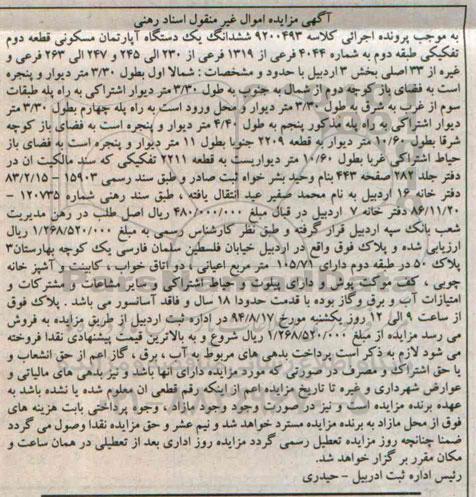 آگهی مزایده اموال غیر منقول اسناد رهنی
به موجب پرونده اجرائی کلاسه ۹۲۰۰۴۹۳ ششدانگ یک دستگاه آپارتمان مسکونی قطعه دوم
تفکیکی طبقه دوم به شماره ۴۰۴۴ فرعی از ۱۳۱۹ فرعی از ۲۳۰ الی ۲۴۵ و ۲۴۷ الی ۲۶۳ فرعی و
غیره از ۳۳ اصلی بخش ۳ اردبیل با حدود و مشخصات : شمالا اول بطول ۳/۳۰ متر دیوار و پنجره
است به فضای باز کوچه دوم از شمال به جنوب به طول ۳/۳۰ متر دیوار اشتراکی به راه پله طبقات
سوم از غرب به شرق به طول ۳/۳۰ متر دیوار و محل ورود است به راه پله چهارم بطول ۳/۳۰ متر
دیوار اشتراکی به راه پله مذکور پنجم به طول ۴/۴۰ متر دیوار و پنجره است به فضای باز کوچه
شرقا بطول ۱۰/۶۰ متر دیوار به قطعه ۲۲۰۹ جنوبا بطول ۱۱ متر دیوار و پنجره است به فضای باز
حیاط اشتراکی غربا بطول ۱۰/۶۰ متر دیواریست به قطعه ۲۲۱۱ تفکیکی که سند مالکیت آن در
دفتر جلد ۲۸۲ صفحه ۴۴۳ بنام وحید بشر خواه ثبت صادر و طبق سند رسمی ۱۵۹۰۳ – ۸۳/۲/۱۵
دفتر خانه ۱۶ اردبیل به نام محمد صفیر عبد انتقال یافته ، طبق سند رهنی شماره ۱۲۰۷۳۵ –
۸۶/۱۱/۲۰ دفتر خانه ۷ اردبیل در قبال مبلغ ۴۸۰/۰۰۰/۰۰۰ ریال اصل طلب در رهن مدیریت
شعب بانک سپه اردبیل قرار گرفته و طبق نظر کارشناس رسمی به مبلغ ۱/۲۶۸/۵۲۰/۰۰۰ ریال
ارزیابی شده و پلاک فوق واقع در اردبیل خیابان فلسطین سلمان فارسی یک کوچه بهارستان۳
پلاک ۵۰ در طبقه دوم دارای ۱۰۵/۷۱ متر مربع اعیانی ، دو اتاق خواب ، کابینت و آشپز خانه
چوبی ، کف موکت پوش و دارای پیلوت و حیاط اشتراکی و سایر مشاعات و مشترکات و
امتیازات آب و برق وگاز بوده با قدمت حدودا ۱۸ سال و فاقد آسانسور می باشد . پلاک فوق
از ساعت ۹ الی ۱۲ روز یکشنبه مورخ ۹۴/۸/۱۷ در اداره ثبت اردبیل از طریق مزایده به فروش
می رسد مزایده از مبلغ ۱/۲۶۸/۵۲۰/۰۰۰ ریال شروع و به بالاترین قیمت پیشنهادی نقدا فروخته
می شود لازم به ذکر است پرداخت بدهی های مربوط به آب ، برق ، گاز اعم از حق انشعاب و
یا حق اشتراک و مصرف در صورتی که مورد مزایده دارای آنها باشد و نیز بدهی های مالیاتی و
عوارض شهرداری و غیره تا تاریخ مزایده اعم از اینکه رقم قطعی آن معلوم شده یا نشده باشد به
عهده برنده مزایده است و نیز در صورت وجود وجوه مازاد ، وجوه پرداختی بابت هزینه های
فوق از محل مازاد به برنده مزایده مسترد خواهد شد و نیم عشر و حق مزایده نقدا وصول می گردد
ضمنا چنانچه روز مزایده تعطیل رسمی گردد مزایده روز اداری بعد از تعطیلی در همان ساعت و
مکان مقرر بر گزار خواهد شد.
رئیس اداره ثبت ادربیل – حیدری